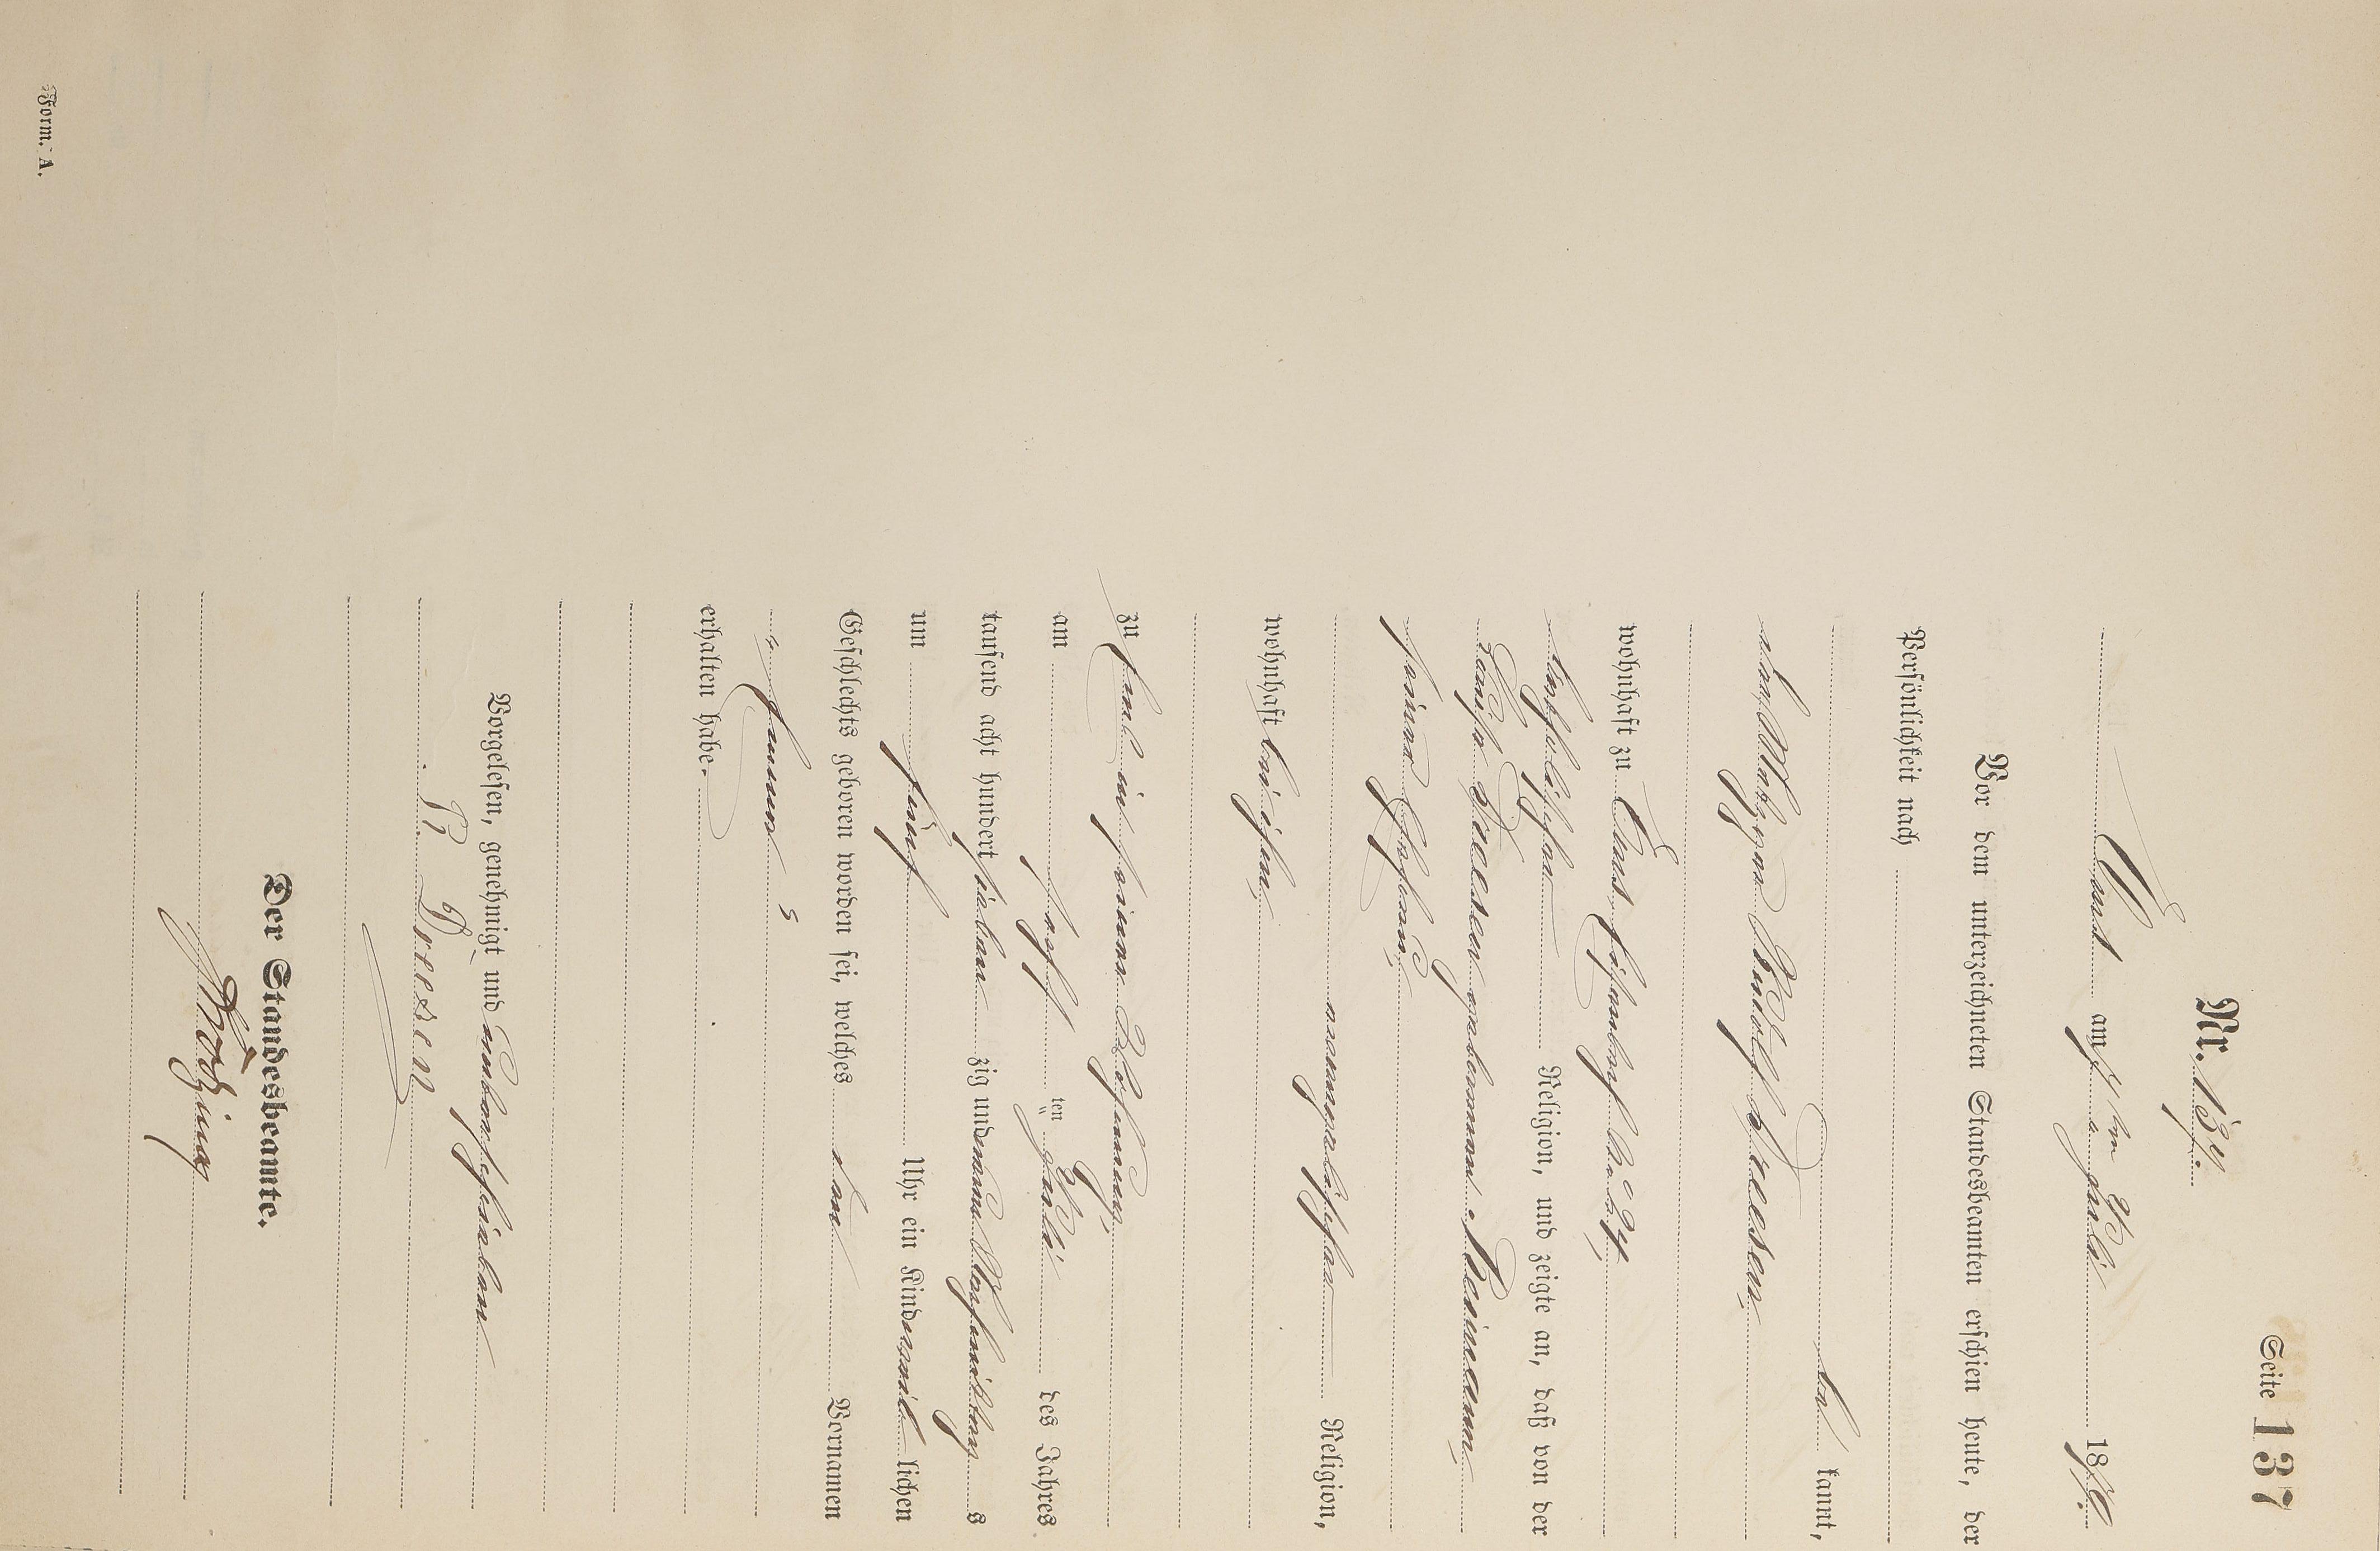 Seite 137
Nr. 137.
am 7ten Juli 1879.
Vor dem unterzeichneten Standesbeamten erschien heute, der
Persönlichkeit nach
be kannt,
der Metzger Rudolf Dreesen,
wohnhaft zu Ems,
katholischer Religion, und zeigte an, daß von der
Louise Dreesen geborenen
seiner Ehefrau,
evangelischer Religion,
wohnhaft bei ihm,
zu Ems in seiner Wohnung,
am ten Juli des Jahres
tausend acht hundert siebenzig und neun Vormittags
um fünf Uhr ein Kind männlichen
Geschlechts geboren worden sei, welches den Vornamen
erhalten habe.
Vorgelesen, genehmigt und unterschrieben
R. Dreesen
Der Standesbeamte.
Form. A.